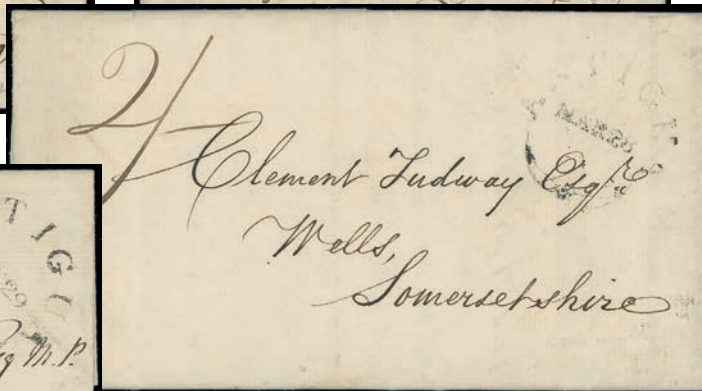 2/
Clement Tudway Esqre
Wells,
Somersetshire
MAR 28
TIGU
M.P.